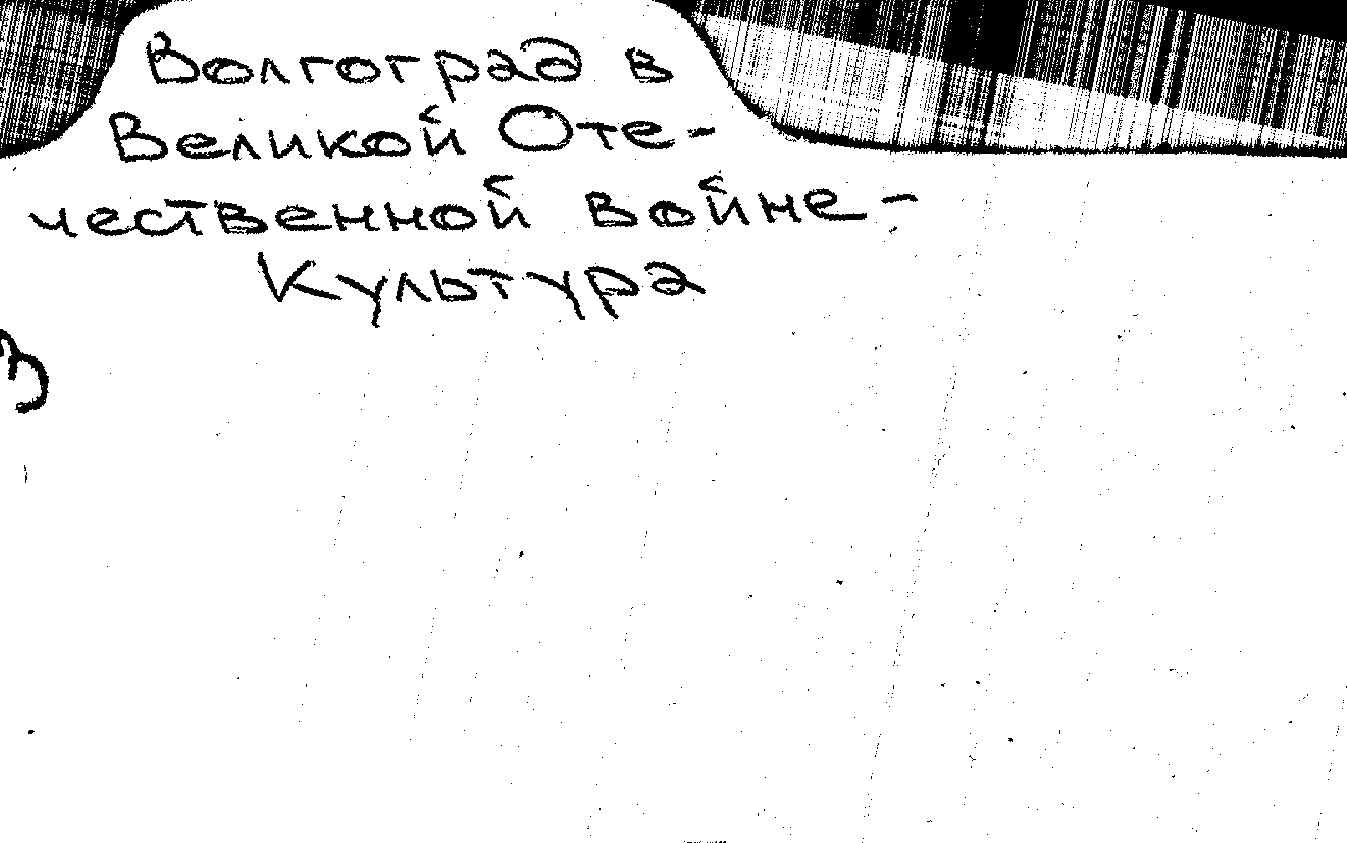 Волгоград в
Великой Оте-
чественной войне-
Культура